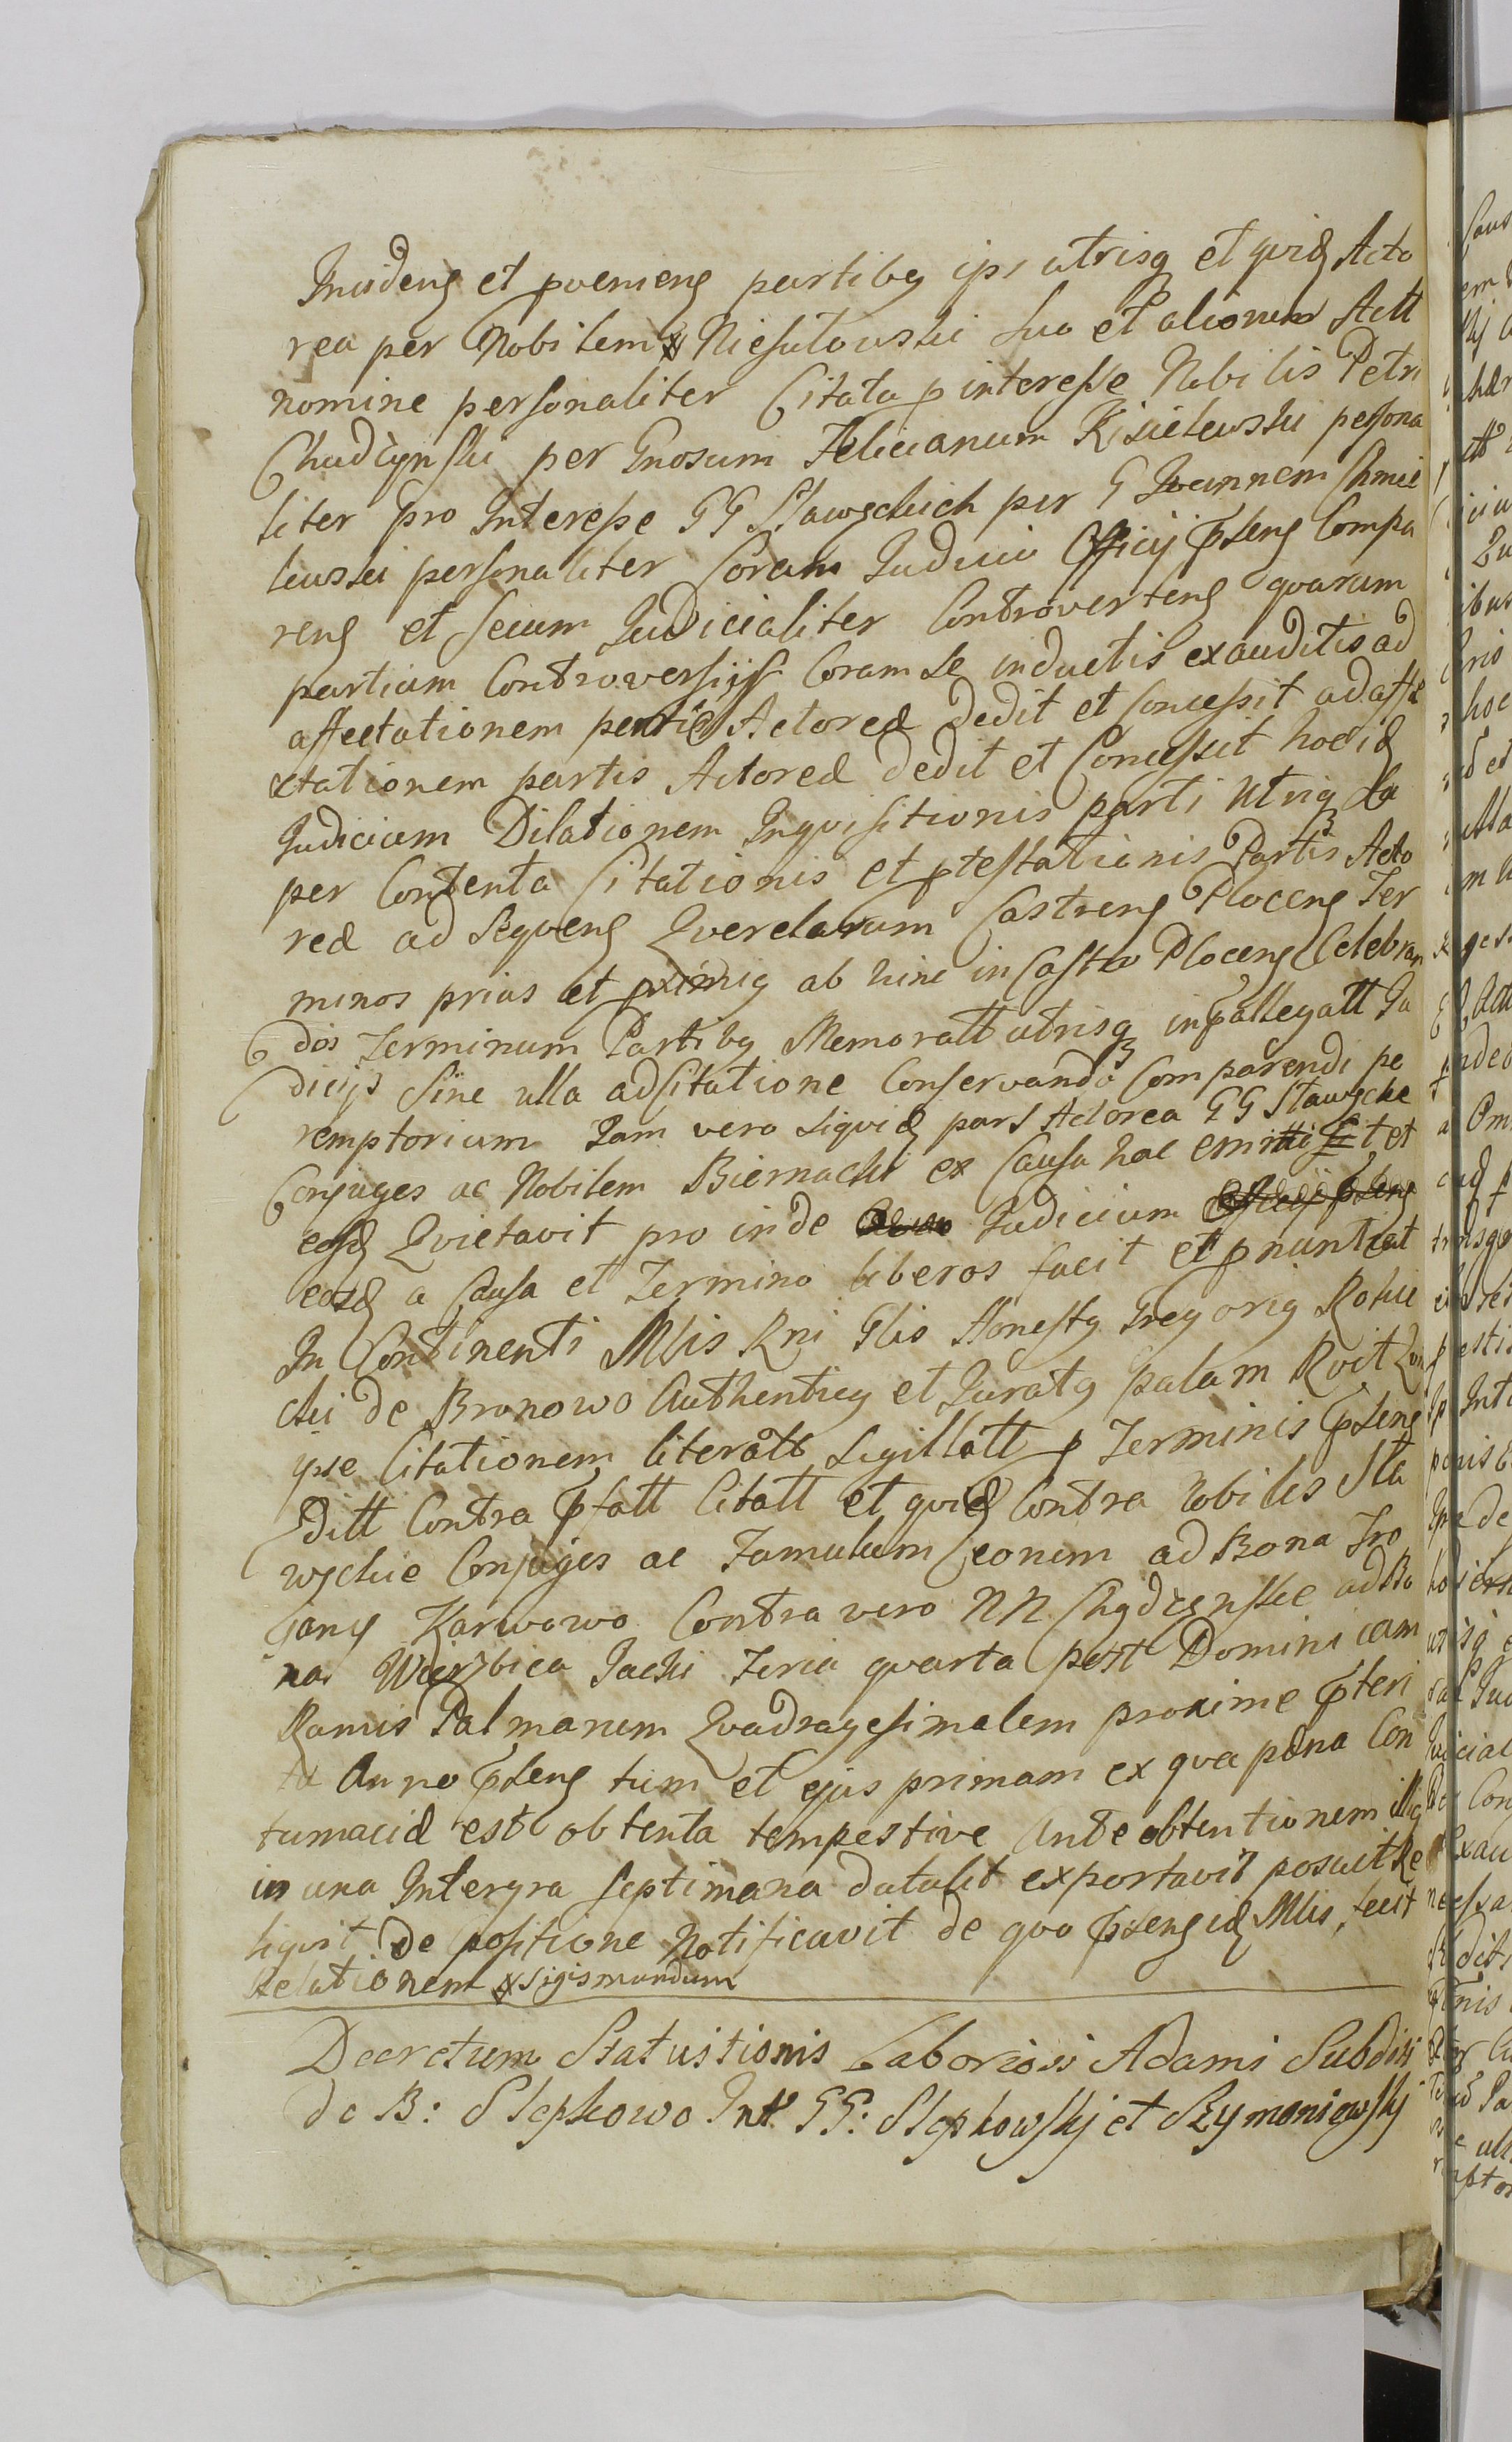 Inciden et pvenien partibus ipsi utrisq et quid Acto
rea per Nobilem Niesułowski suo et aliorum Actt
nomine personaliter Citata p interesse Nobilis Petri
Chudzynski per Gnosum Felicianum Kisielewski persona
liter pro Interesse GG Sławęckich per G Joannem Chmie
lewski personaliter Coram Judicio Officij pnsens Compa
rens et secum Judicialiter Controvertens quarum
partium Controversijs Coram se inductis exauditis ad
affectationem partis Actoreæ dedit et Concessit ad affe
ctationem partis Actoreæ dedit et Concessit hocid
Judicium Dilationem Inquisitionis parti utriq su
per Contenta Citationis et ptestationis Partis Acto
reæ ad sequens Querelarum Castrens Plocens Ter
minos prius et pximiq ab hinc in Castro Plocens Celebran
dos Terminum Partibq Memoratt utrisq in pallegatt Ju
dicijs sine ulla adcitatione Conservando Comparendi pe
remptorium Jam vero siquid pars Actorea GG Sławęckie
Conjuges ac Nobilem Biernacki ex Causa hac emittit et
eosd Quietavit pro inde Judicium
eosd a Causa et Termino liberos facit et pnuntiat
In Continenti Mlis Rni Glis Honestq Gregoriq Rokic
cki de Bronowo Authenticq et Juratq palam Rvit Quia
ipse Citationem literatt Sigillatt p Terminis psens
Ditt Contra pfatt Citatt et quid Contra Nobiles Sła
węckie Conjuges ac Famulum eorum ad Bona Tro
jany Karwowo Contra vero NN Chądzynskie ad Bo
na Wierzbica Jacki Feria quarta post Dominicam
Ramis Palmarum Quadragesimalem proxime pteri
ta Anno psens tum et ejus primam ex qva pæna Con
tumaciæ est obtenta tempestive ante obtentionem illiq
in una Intergra septimana detulit exportavit posuit Re
liquit De positione Notificavit de quo psens id Mlis fecit
Relationem x Sigismundum
Decretum Statuitionis Laboriosi Adami Subditi
de B: Slepkowo Int GG: Slepkowskj et Szymaniowskj